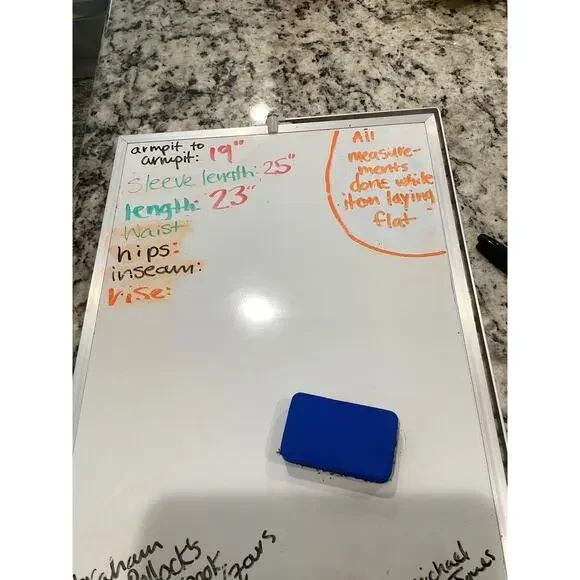 armpit to
armpit: 19"
Sleeve length: 25"
length: 23"
Waist
hips:
inseam:
rise:
All
measure-
ments
done while
item laying
flat
michael